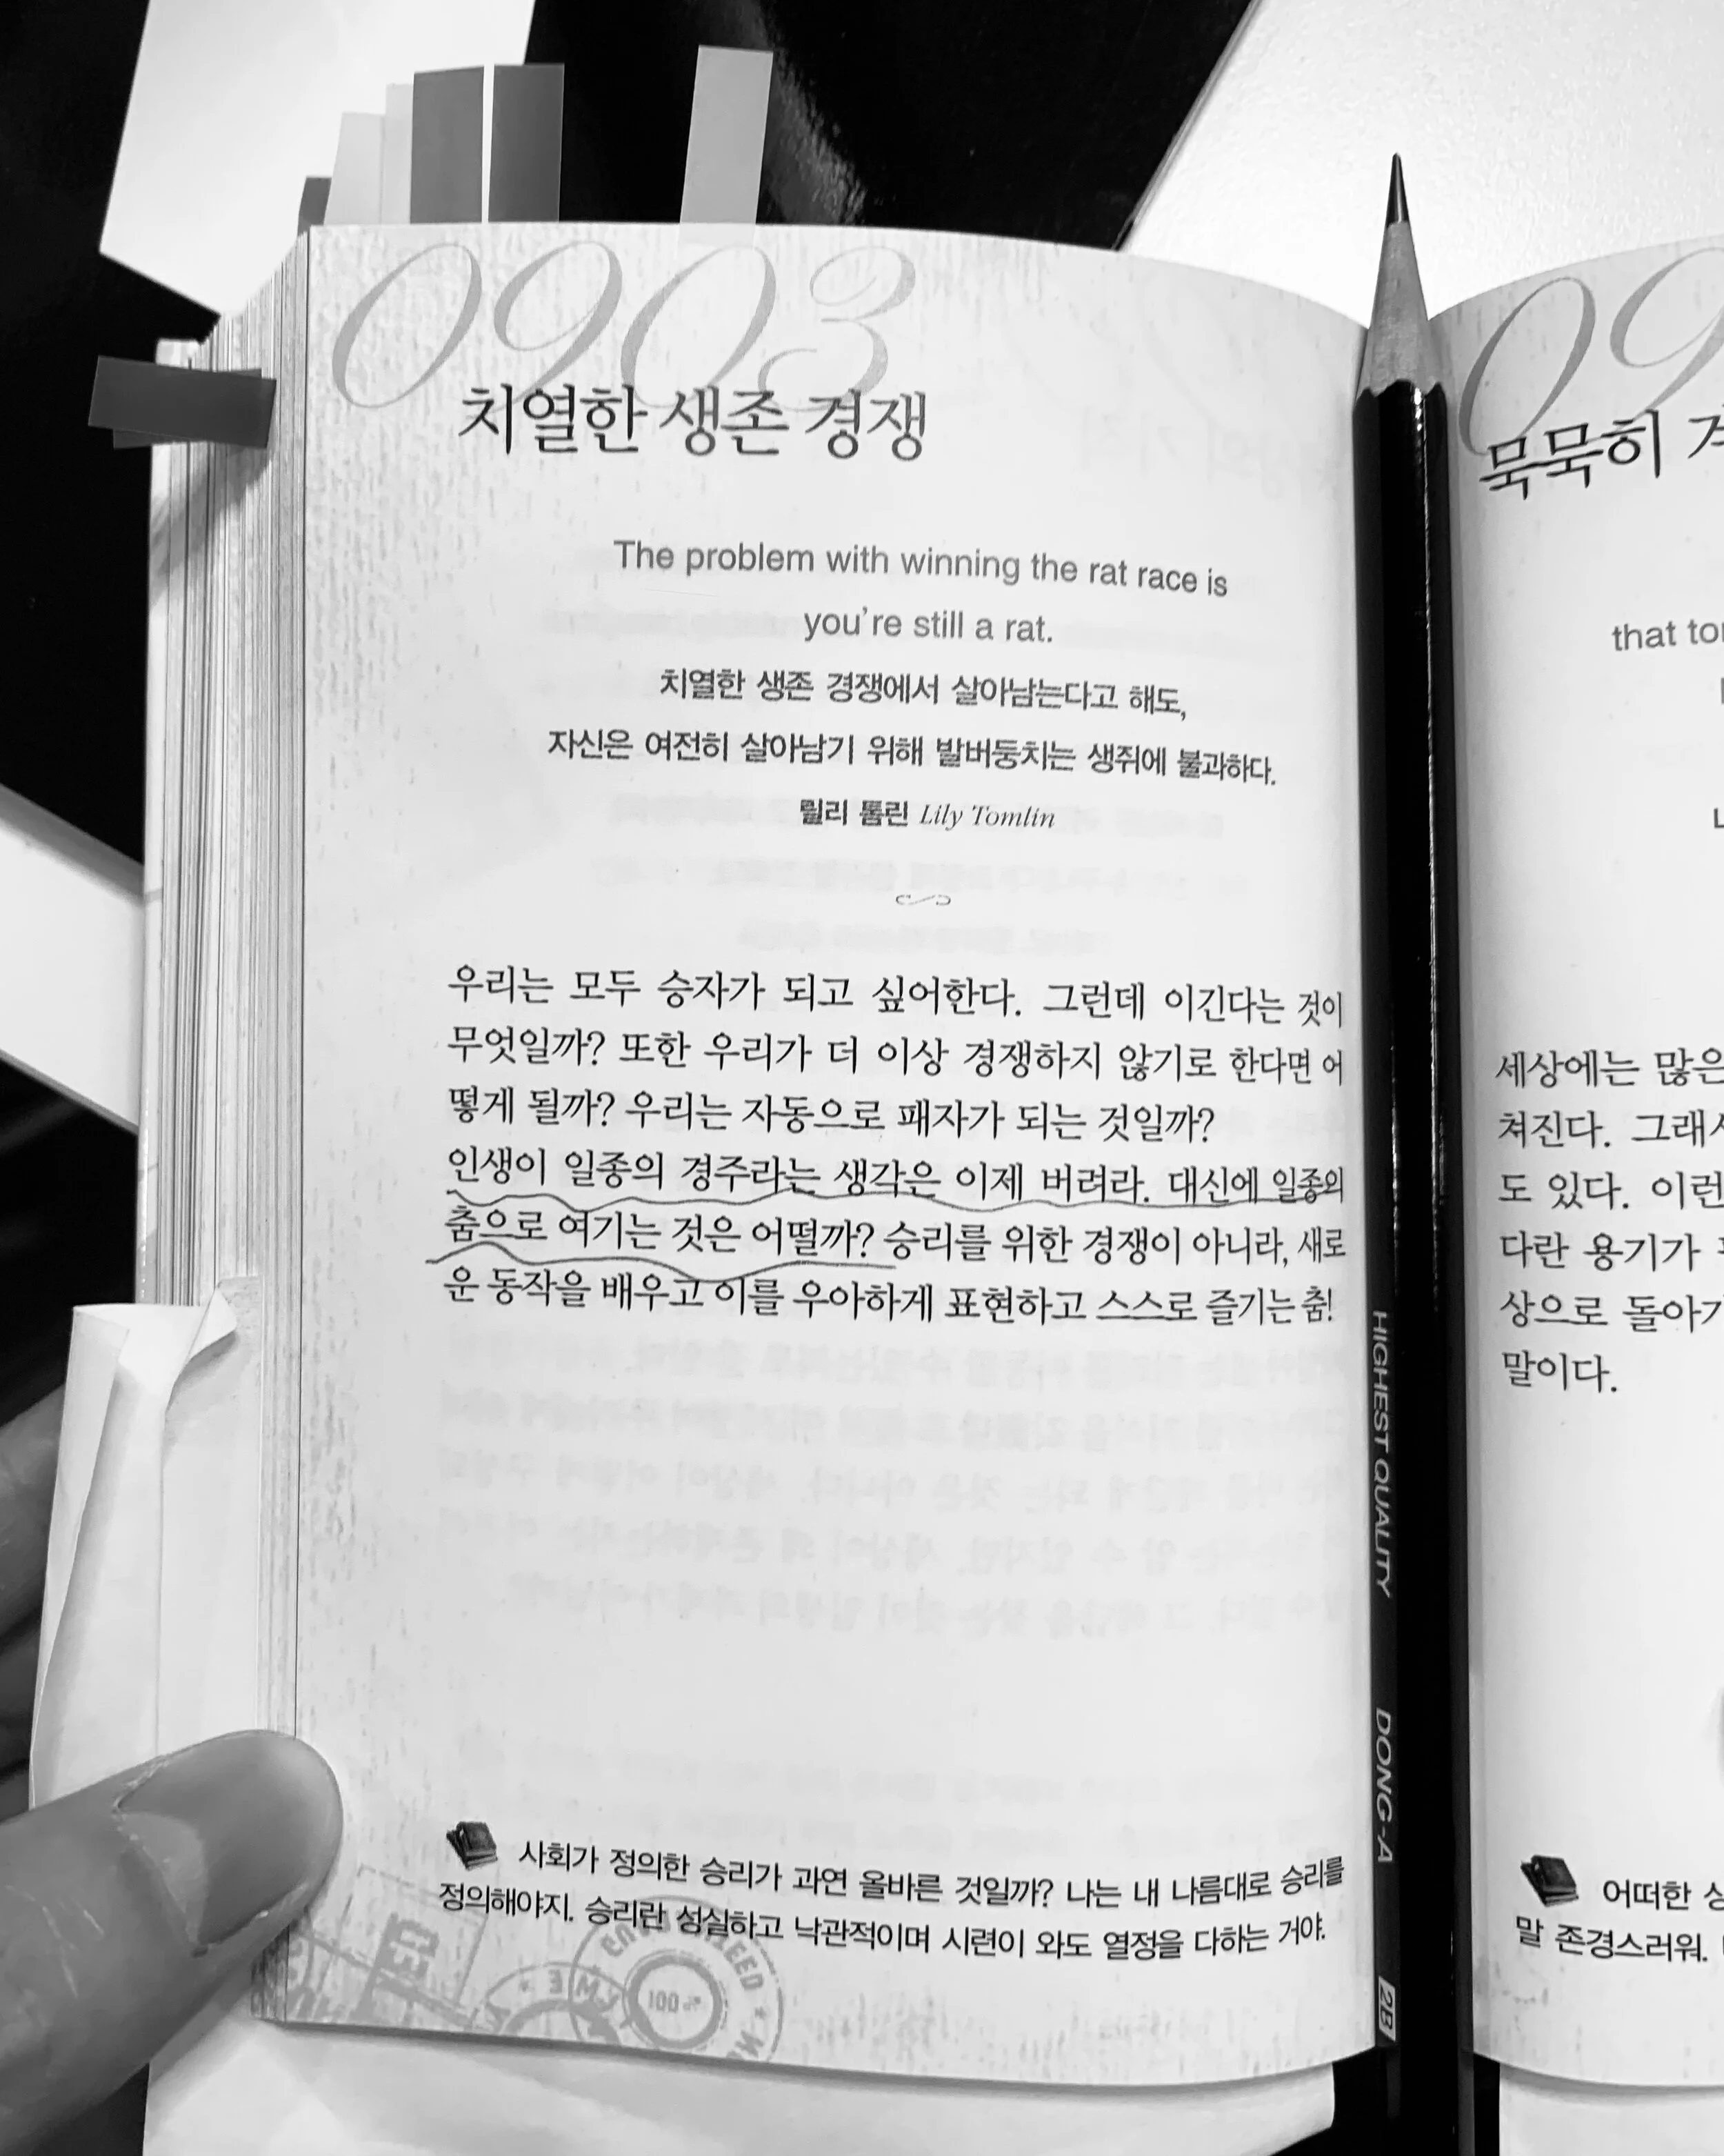 0903
치열한 생존 경쟁
The problem with winning the rat race is
you're still a rat.
치열한 생존 경쟁에서 살아남는다고 해도,
자신은 여전히 살아남기 위해 발버둥치는 생쥐에 불과하다.
릴리 톰린 Lily Tomlin
우리는 모두 승자가 되고 싶어한다. 그런데 이긴다는 것이
무엇일까? 또한 우리가 더 이상 경쟁하지 않기로 한다면 어
떻게 될까? 우리는 자동으로 패자가 되는 것일까?
인생이 일종의 경주라는 생각은 이제 버려라. 대신에 일종의
춤으로 여기는 것은 어떨까? 승리를 위한 경쟁이 아니라, 새로
운 동작을 배우고 이를 우아하게 표현하고 스스로 즐기는 춤!
사회가 정의한 승리가 과연 올바른 것일까? 나는 내 나름대로 승리를
정의해야지. 승리란 성실하고 낙관적이며 시련이 와도 열정을 다하는 거야.
100%
HIGHEST QUALITY DONG-A 2B
09
묵묵히
that
세상에는 많은
쳐진다. 그래서
도 있다. 이런
다란 용기가
상으로 돌아가
말이다.
어떠한
말 존경스러워.